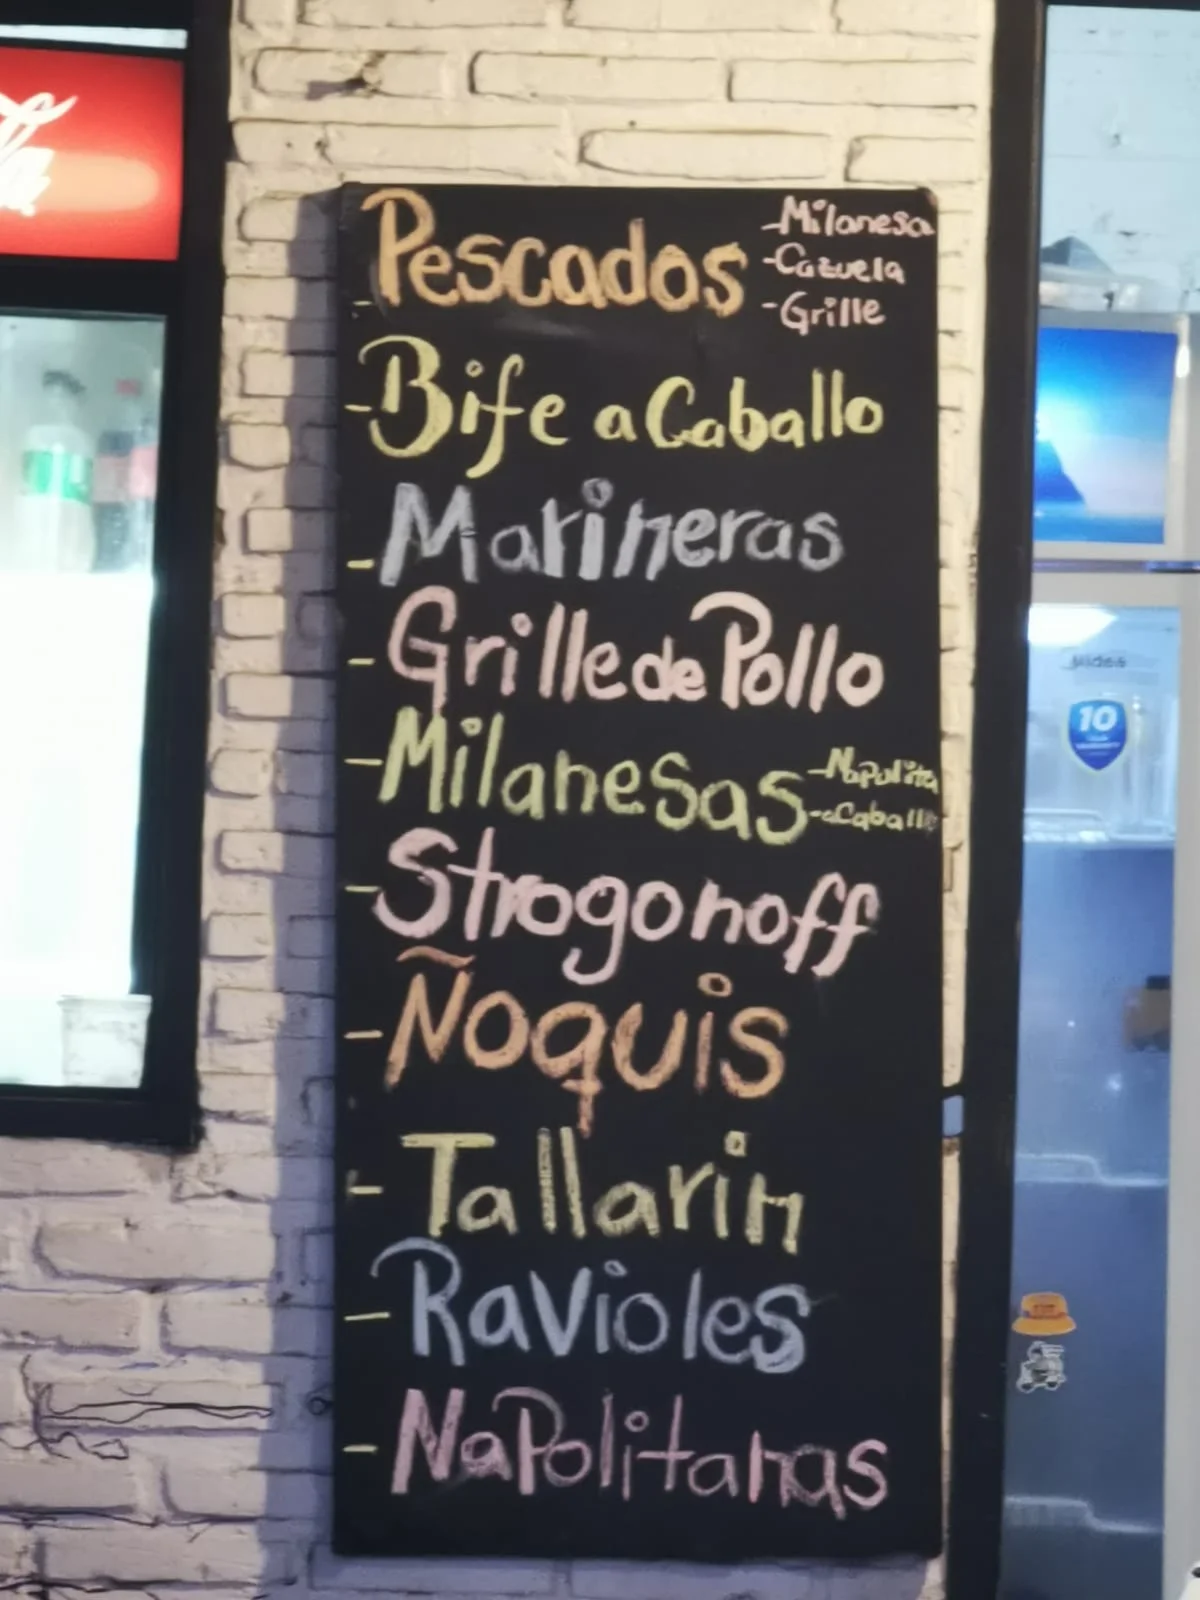 - Pescados
- Milanesa
- Cazuela
- Grille
- Bife a Caballo
- Marineras
- Grille de Pollo
- Milanesas
- Napolita
- a Caball
- Strogonoff
- Ñoquis
- Tallarin
- Ravioles
- NaPolitanas
10